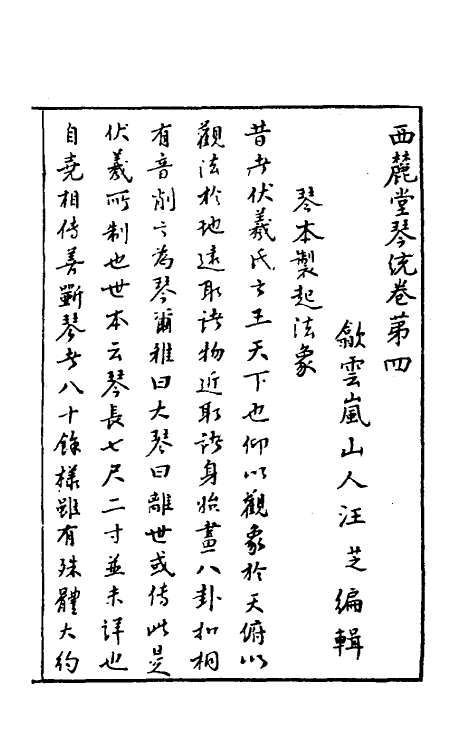 西麓堂琴统卷第四
歙雲嵐山人汪芝編輯
琴本製起法象
昔者伏羲氏之王天下也仰以觀象於天俯以
觀法於地遠取诸物近取诸身始畫八卦扣桐
有音削之為琴爾雅曰大琴曰離世或傳此是
伏羲所制也世本云琴長七尺二寸並未详也
自堯相傳善斲琴者八十餘樣雖有殊體大约